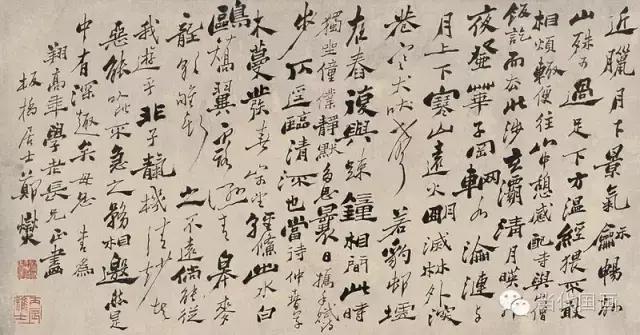 近臘月下景氣龢暢故
山殊可過足下方溫經猥不敢
相煩輒便往山中憩感配寺與山僧
飯訖而去北涉玄灞清月暎郭
夜登華子岡輞水淪漣與
月上下寒山遠火明滅林外深
巷寒犬吠聲若豹邨墟
夜舂復與疎鐘相間此時
獨坐僮僕靜默多思曩日攜手賦詩
步仄逕臨清流也當待仲春草
木蔓發春山可望輕鯈出水白
鷗矯翼露溼青皋麥
隴朝雊斯之不遠倘能從
我遊乎非子天機清妙者
豈能以此不急之務相邀然是
中有深趣矣毋忽書為
翔高年學老長兄正
板橋居士鄭燮
当代国画